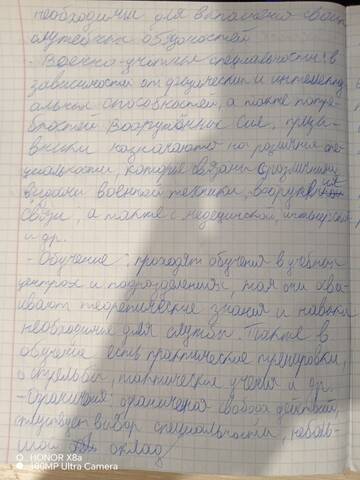 необходимы для выполнения своих
служебных обязностей
- Военно-учётные специальности: в
зависимости от физических и интеллекту
альных способностей, а также потре-
бностей Вооружённых Сил, призы-
вники назначаются на различные спе-
циальности, которые связаны с различными
видами военной техники, вооружения
связи, а также с медецинской,
и др.
- Обучение: проходят обучения в учебных
центрах и подразделениях, там они осва-
ивают теоретические знания и навыки
необходимые для службы. Также в
обучение есть практические тренировки,
стрельбы, тактические учения и др.
- Ограничения: ограниченая свобода действий,
отсутствует выбор специальности, неболь-
шой оклад
HONOR X8a
100MP Ultra Camera